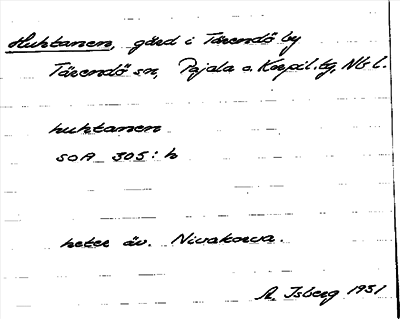 Huhtanen, gård i Tärendö by
Tärendö sn, Pajala o. Korpil. tg, Nb l.
huhtanen
SOA 305: h
heter äv. Nivakorva.
A. Isberg 1931